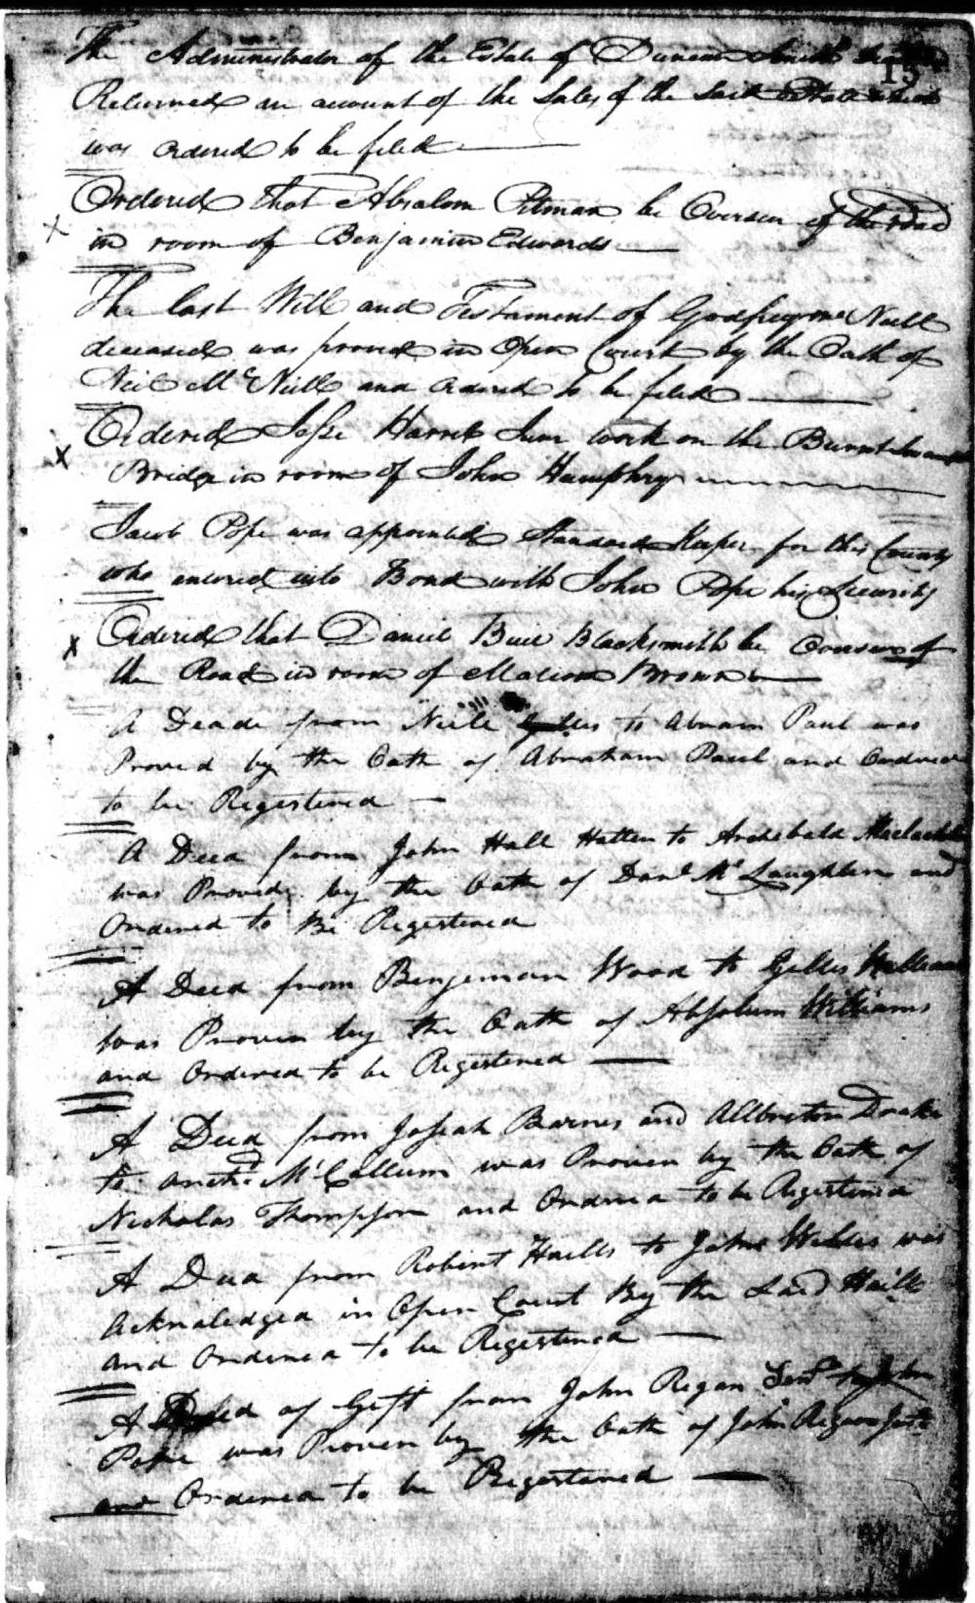 15
The Administrator of the Estate of Duncan Smith
Returned an account of the Sales of the Said Estate which
was ordered to be filed
Ordered that Absalom Pitman be Overseer of the road
in room of Benjamin Edwards
The last Will and Testament of Godfrey Mc Neill
deceased was proved in Open Court by the Oath of
Neil Mc Neill and ordered to be filed
Ordered Jesse Harrell Sen work on the Burnt Swamp
Bridge in room of John Humphry
Jacob Pope was appointed Standard Keeper for this County
who entered into Bond with John Pope his Security
Ordered that Daniel Buie Blacksmith be Overseer of
the Road in room of Malcom Brown
A Deade from Neile to Abram Paul was
Proved by the Oath of Abraham Paul and Ordered
to be Registered
A Deed from John Hall Hatten to Archebald
was Proved by the Oath of Danl Mc Laughlin and
Ordered to Be Registered
A Deed from Benjeman Wood to Gelles Williams
was Proven by the Oath of Absolum Williams
and Ordered to be Registered
A Deed from Josiah Barnes and Allbreton Drake
to Archd. Mc Collum was Proven by the Oath of
Nicholas Thompson and Ordered to be Registered
A Deed from Robert Haills to John Willis was
Acknaledged in Open Court By the Said Haill
and Ordered to be Registered
A Deed of Gift from John Regan Senr to John
Pope was Proven by the Oath of John Regan
and Ordered to be Registered